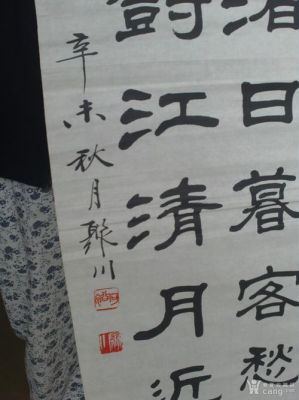 渚日暮客愁
樹江清月近
辛未秋月川
cang.com